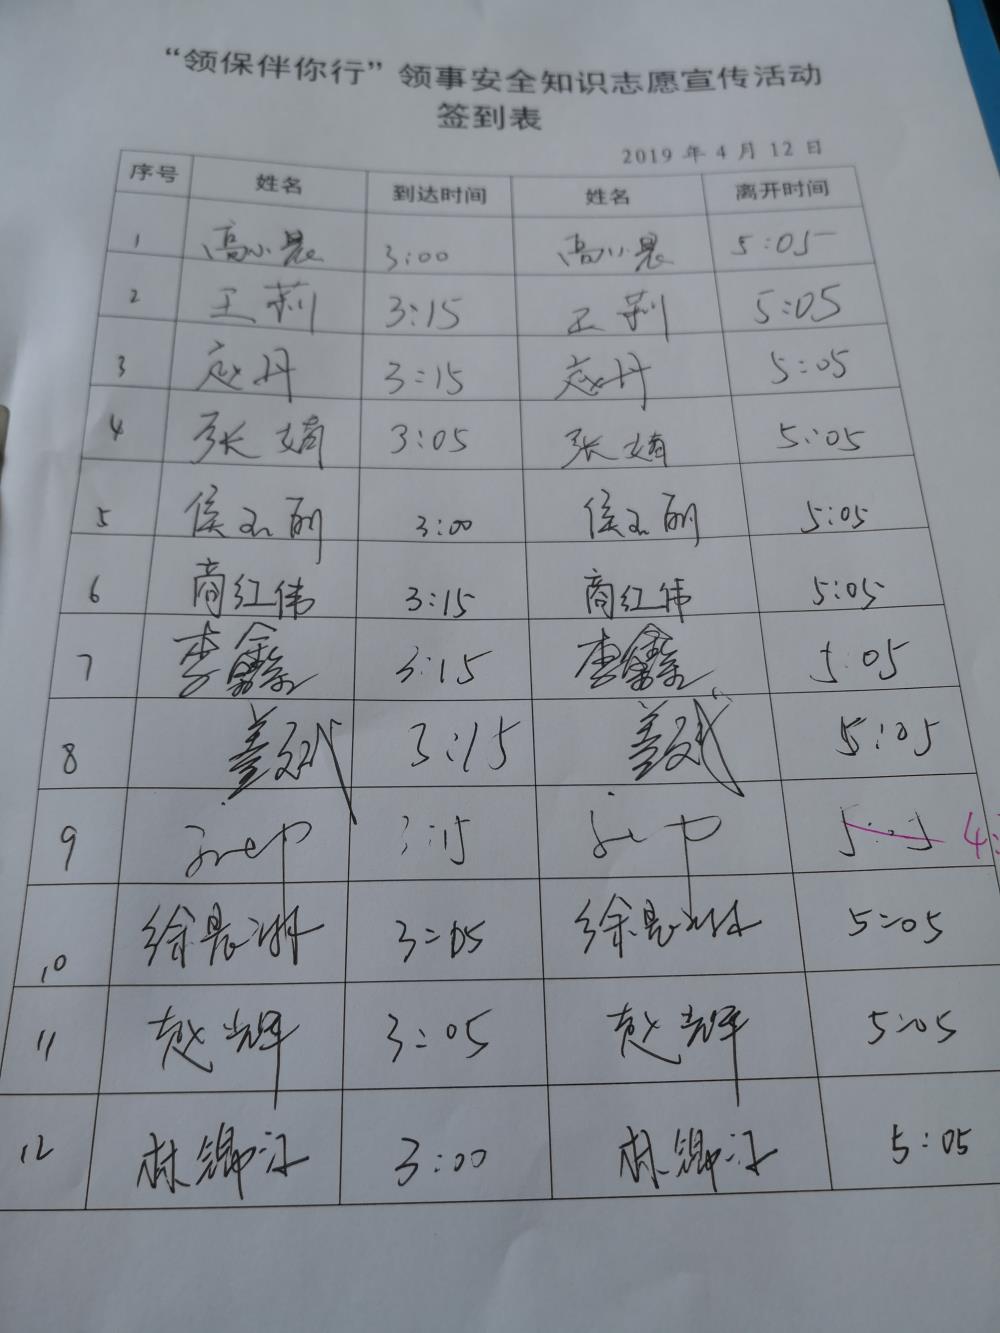 “领保伴你行”领事安全知识志愿宣传活动
签到表
2019 年 4 月 12 日
序号 姓名 到达时间 姓名 离开时间
1 高小晨 3:00 高小晨 5:05
2 王莉 3:15 王莉 5:05
3 赵丹 3:15 赵丹 5:05
4 张婧 3:05 张婧 5:05
5 侯玉丽 3:00 侯玉丽 5:05
6 商红伟 3:15 商红伟 5:05
7 李鑫 3:15 李鑫 5:05
8 姜斌 3:15 姜斌 5:05
9 3:15 5:05 4:
10 徐晨琳 3:05 徐晨琳 5:05
11 赵辉 3:05 赵辉 5:05
12 林卿汗 3:00 林卿汗 5:05